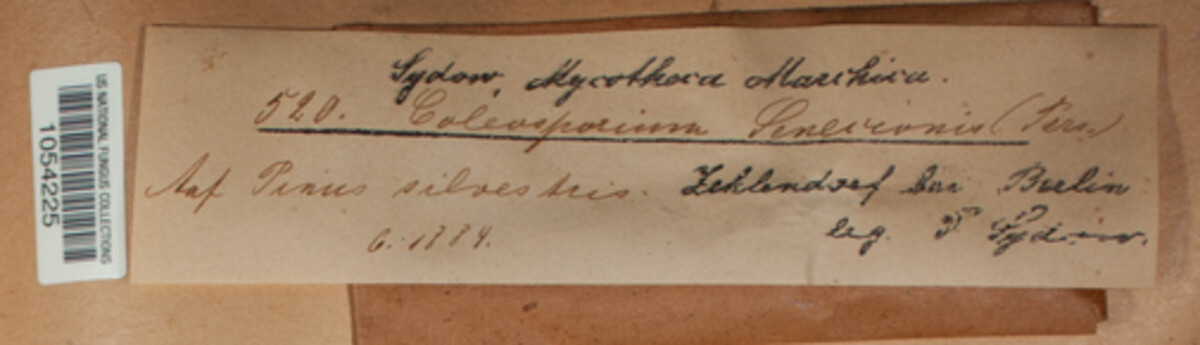 US NATIONAL FUNGUS COLLECTIONS
1054225
Sydow, Mycotheca Marchica.
520. Coleosporium Senecionis (Pers.)
Auf Pinus silvestris. Zehlendorf bei Berlin
6. 1884. leg. P Sydow.